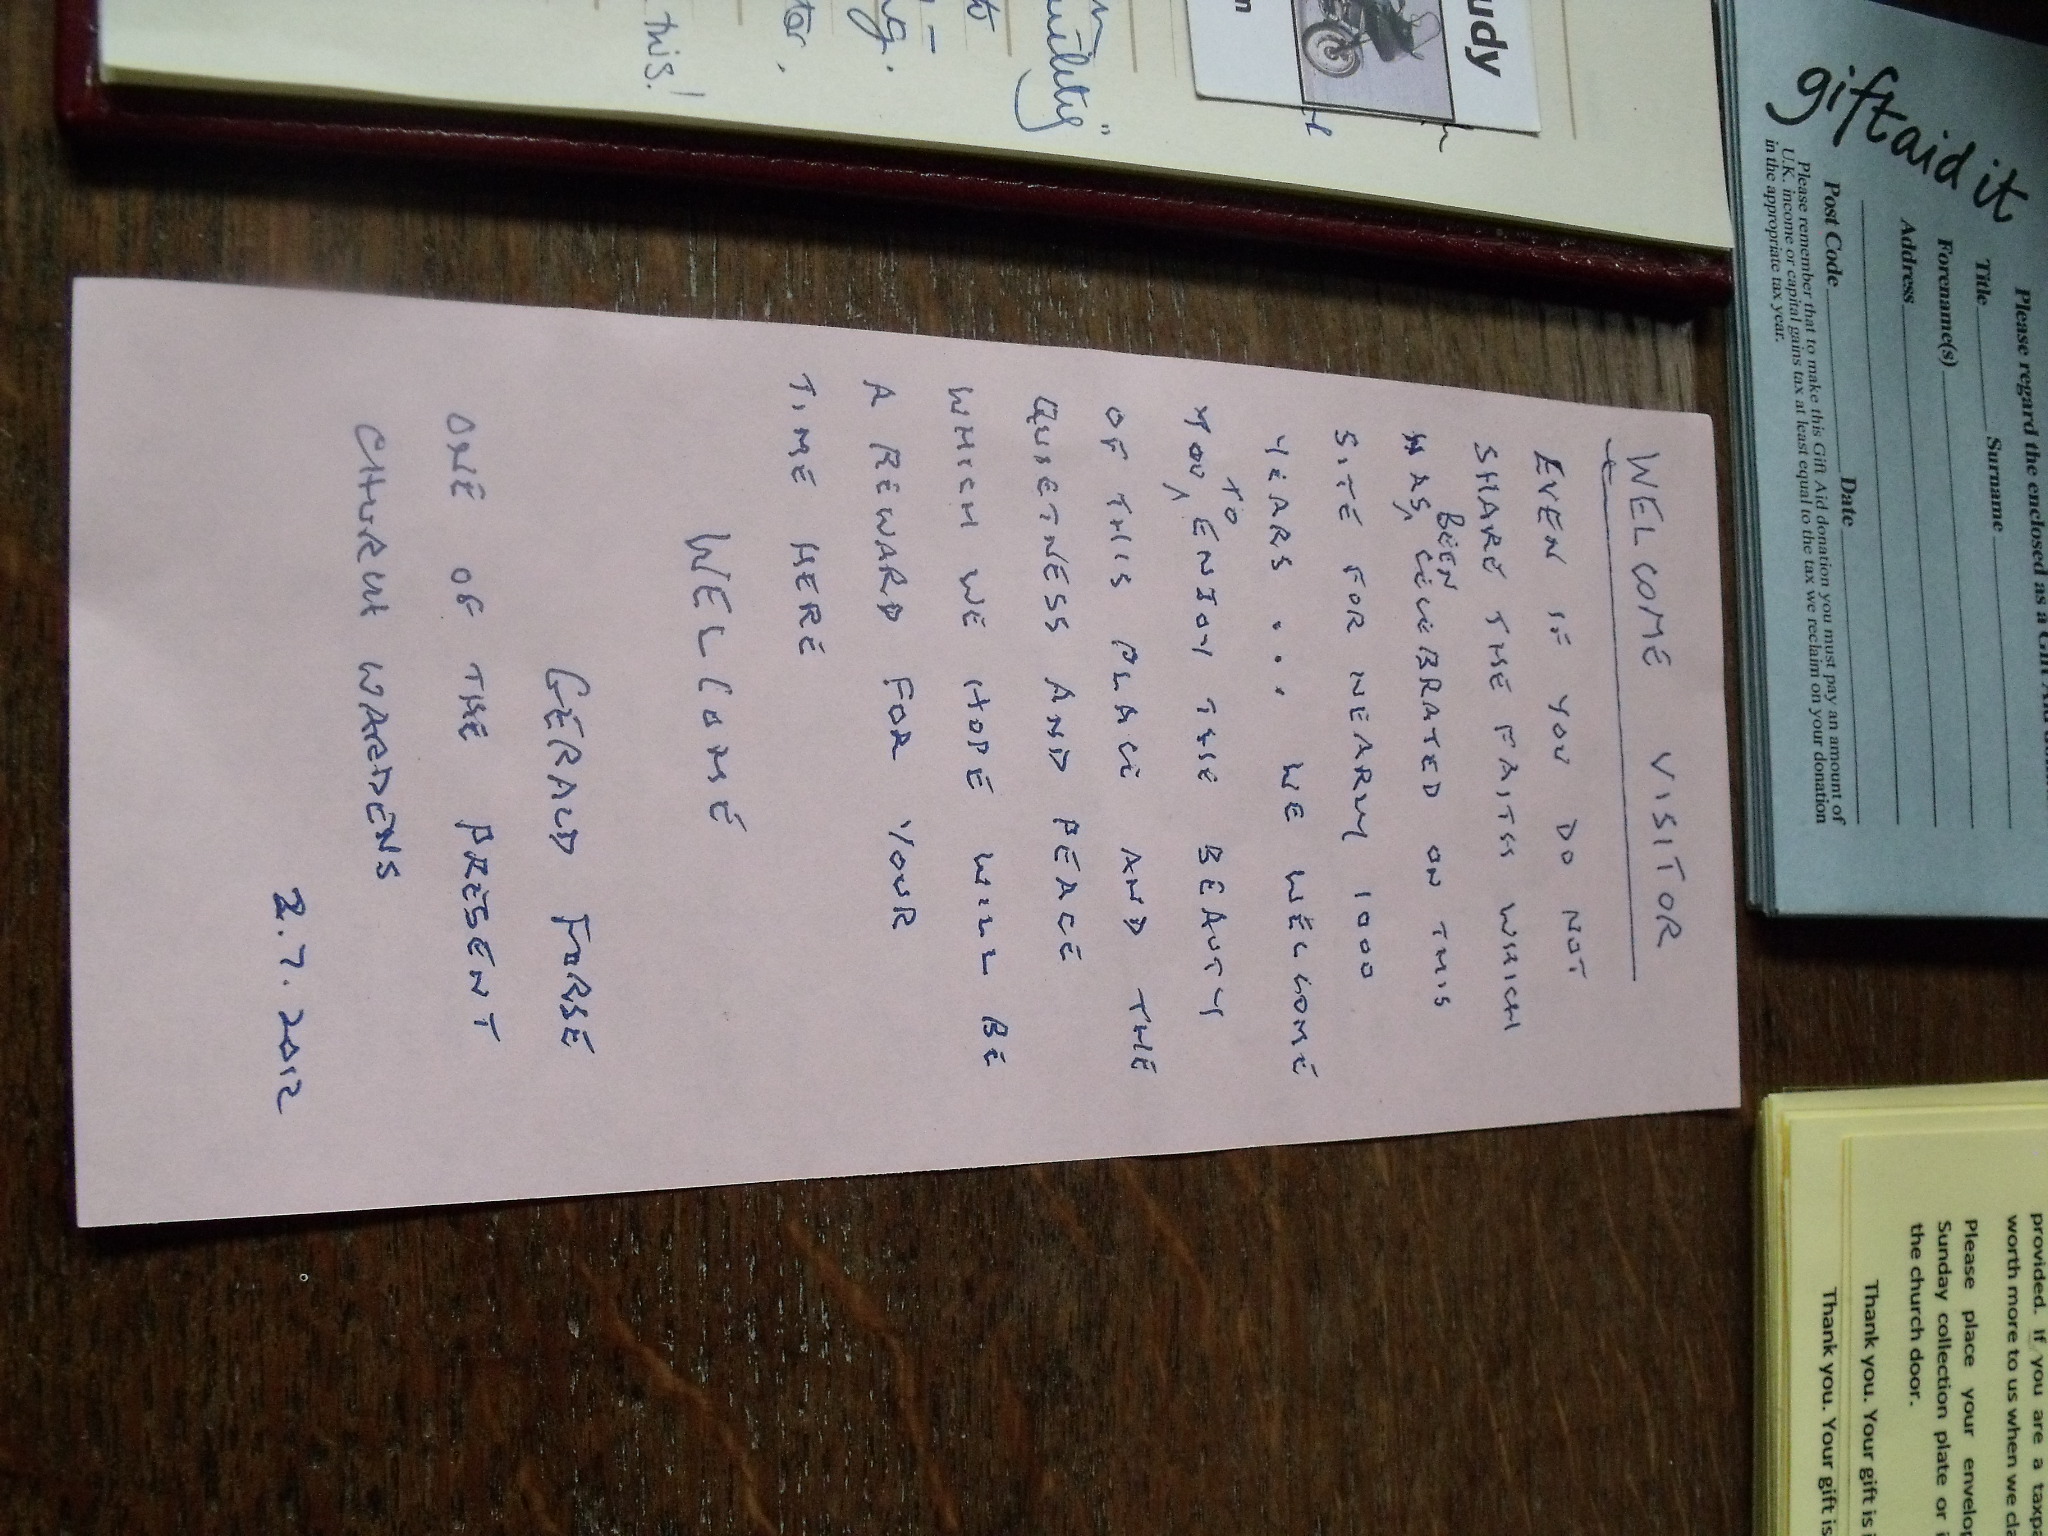 WELCOME VISITOR
EVEN IF YOU DO NOT
SHARE THE FAITH WHICH
HAS BEEN CELEBRATED ON THIS
SITE FOR NEARLY 1000
YEARS ... WE WELCOME
YOU TO ENJOY THE BEAUTY
OF THIS PLACE AND THE
QUIETNESS AND PEACE
WHICH WE HOPE WILL BE
A REWARD FOR YOUR
TIME HERE
WELCOME
GERALD FORSE
ONE OF THE PRESENT
CHURCH WARDENS
2.7.2012
this!
udy
giftaid it
Please regard the enclosed as a Gift Aid
Title Surname
Forename(s)
Address
Post Code Date
Please remember that to make this Gift Aid donation you must pay an amount of
U.K. income or capital gains tax at least equal to the tax we reclaim on your donation
in the appropriate tax year.
provided. If you are a
worth more to us when we
Please place your
Sunday collection plate or
the church door.
Thank you. Your gift is
Thank you. Your gift is